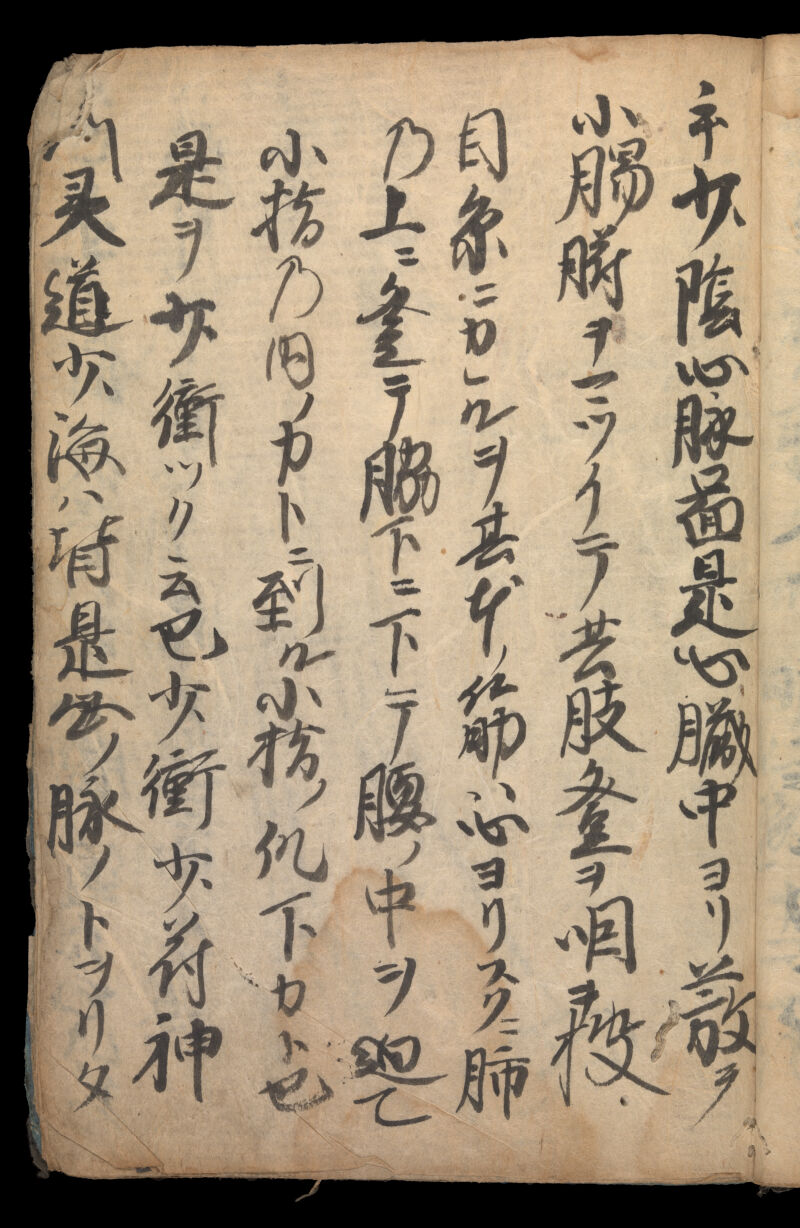 手少陰心脉图是心臓中ヨリ散ヲ
小腸膀ヲマツイテ其肢登ヲ咽
目糸ニカヽルヲ其本ノ筋心ヨリスクニ肺
乃上ニ登テ脇下ニ下テ腰ノ中ヲ廻て
小指乃内ノカトニ到ル小指ノ仈下カト也
是ヲ少衝ツク云也少衝少苻神
門灵道少海ハ皆是ノ脉ノトヲリタ